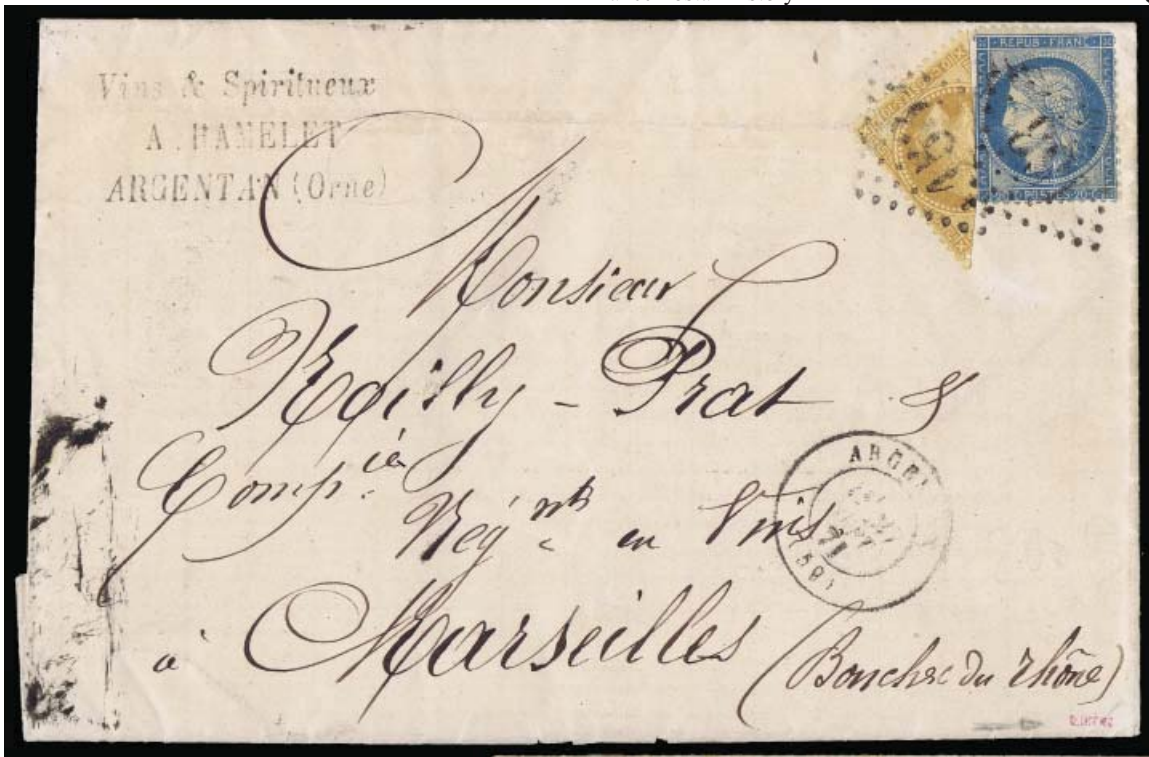 Vins & Spiritueux
A. HAMELET
ARGENTAN (Orne)
REPUB · FRANC
20 C POSTES 20 C
Monsieur
Noilly - Prat &
Comp.ie
Nég.nts en Vins
à Marseilles
(Bouches du Rhône)
ARGE
71
(59)